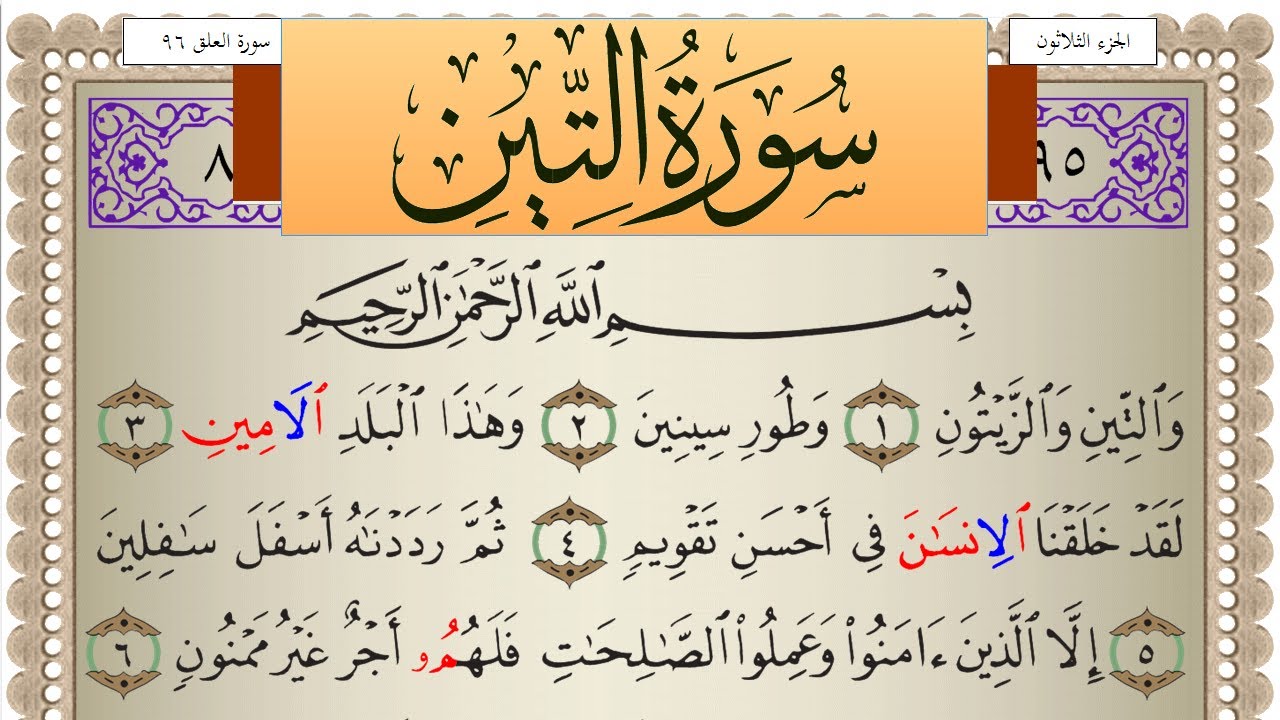 الجزء الثلاثون
سورة العلق ٩٦
سُورَةُ التِّينِ
٩٥
٨
بِسْمِ ٱللَّهِ ٱلرَّحْمَٰنِ ٱلرَّحِيمِ
وَٱلتِّينِ وَٱلزَّيْتُونِ ١ وَطُورِ سِينِينَ ٢ وَهَٰذَا ٱلْبَلَدِ ٱلَامِينِ ٣
لَقَدْ خَلَقْنَا ٱلِانسَٰنَ فِي أَحْسَنِ تَقْوِيمٍ ٤ ثُمَّ رَدَدْنَٰهُ أَسْفَلَ سَٰفِلِينَ
٥ إِلَّا ٱلَّذِينَ ءَامَنُوا۟ وَعَمِلُوا۟ ٱلصَّٰلِحَٰتِ فَلَهُمُۥٓ أَجْرٌ غَيْرُ مَمْنُونٍ ٦